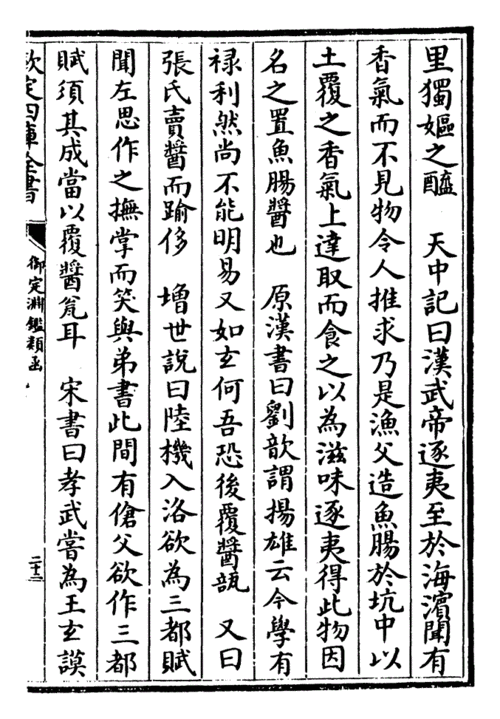 里獨嫗之醢　天中記曰漢武帝逐夷至於海濱聞有
香氣而不見物令人推求乃是漁父造魚腸於坑中以
土覆之香氣上達取而食之以為滋味逐夷得此物因
名之置魚腸醬也　原漢書曰劉歆謂揚雄云今學有
祿利然尚不能明易又如玄何吾恐後覆醬瓿　又曰
張氏賣醬而踰侈　增世說曰陸機入洛欲為三都賦
聞左思作之撫掌而笑與弟書此間有傖父欲作三都
賦須其成當以覆醬瓮耳　宋書曰孝武嘗為王玄謨
欽定四庫全書
御定淵鑑類函
二十二